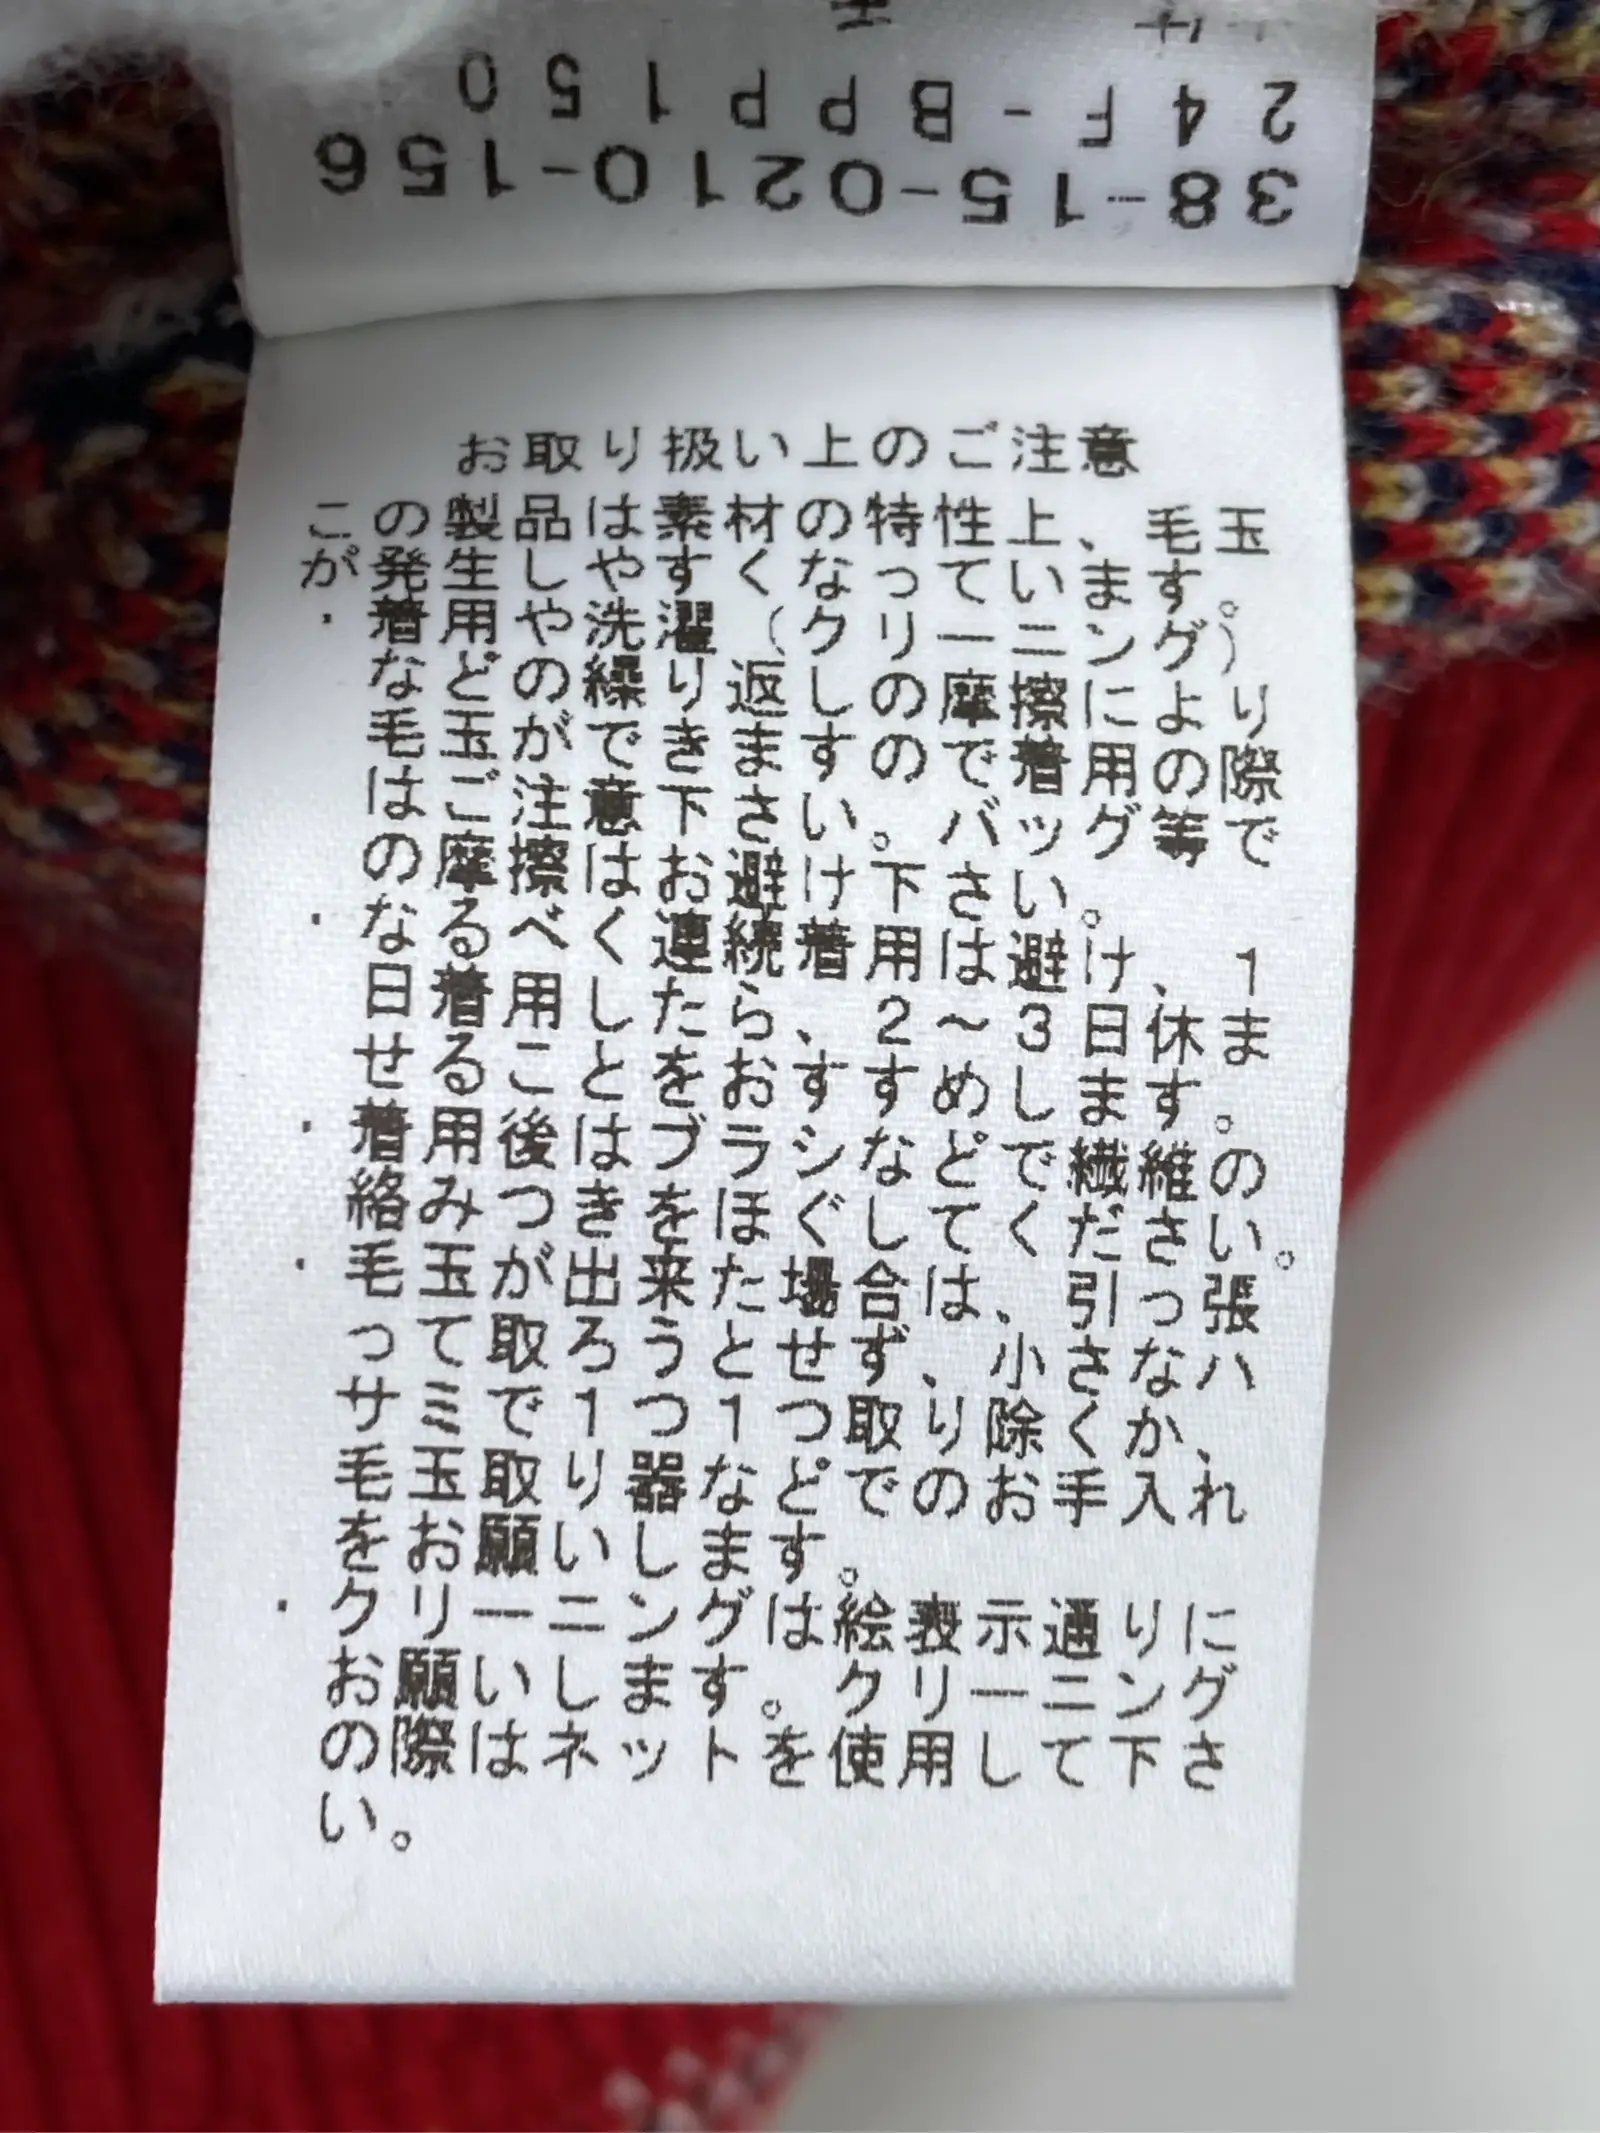 38-15-0210-156
24F-BPP150
お取り扱い上のご注意
この製品は素材の特性上、毛玉
が発生しやすくなっています。
・着用や洗濯(クリーニング)
などの繰り返しの摩擦により
毛玉ができますので着用の際
はご注意下さい。バッグ等で
の摩擦はお避け下さい。
・なるべく連続着用は避け、1
日着用したら、2～3日休ま
せることをおすすめします。
・着用後はブラシなどで繊維の
絡みつきをほぐしてください。
・毛玉が出来た場合は、引っ張
って取ろうとせず、小さなハ
サミで1つ1つ取り除くか、
毛玉取り器などでのお手入れ
をお願いします。
・クリーニングは絵表示通りに
お願いします。クリーニング
の際はネットを使用して下さ
い。